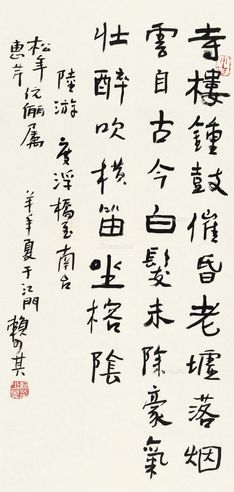 寺樓鍾鼓催昏老墟落烟
雲自古今白髮未除豪氣
壯醉吹橫笛坐榕陰
陸游 度浮橋至南台
松年伉儷屬
惠芹
羊年夏于江門 賴少其